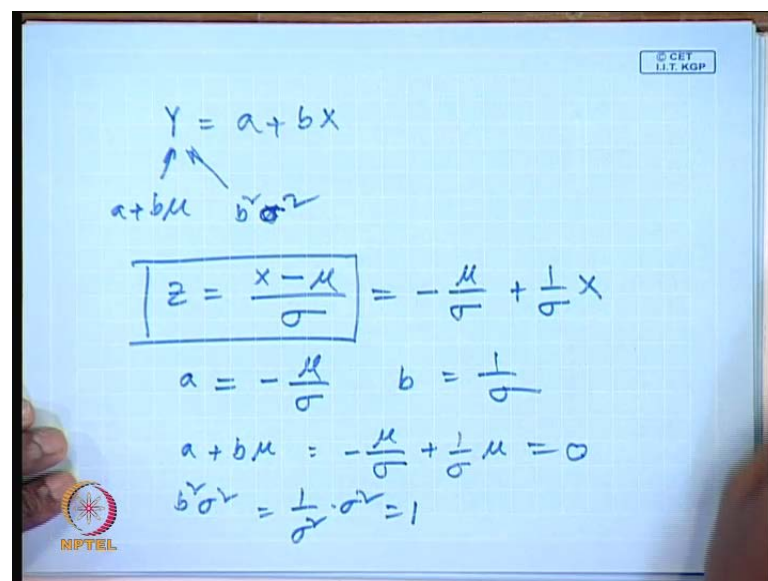 © CET
I.I.T. KGP
Y = a + bX
a + bμ b²σ²
Z = \frac{x - μ}{σ} = - \frac{μ}{σ} + \frac{1}{σ} X
a = - \frac{μ}{σ} b = \frac{1}{σ}
a + bμ = - \frac{μ}{σ} + \frac{1}{σ} μ = 0
b²σ² = \frac{1}{σ²} · σ² = 1
NPTEL